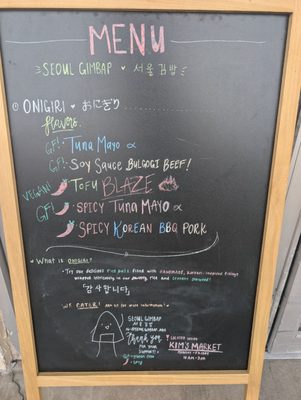 MENU
SEOUL GIMBAP ♥ 서울김밥
ONIGIRI ♥ おにぎり
flavors:
GF! Tuna Mayo
GF! Soy Sauce BULGOGI BEEF!
VEGAN! TOFU BLAZE
GF! SPICY TUNA MAYO
SPICY KOREAN BBQ PORK
What is ONIGIRI?
Try our delicious rice balls filled with HANDMADE, korean-inspired fillings
wrapped in our rice and seaweed!
감사합니다.
WE CATER! Ask us for more information!
SEOUL GIMBAP
서울김밥
Thank you
for your
SUPPORT!
LOCATED INSIDE
KIM'S MARKET
GF = gluten free
= spicy